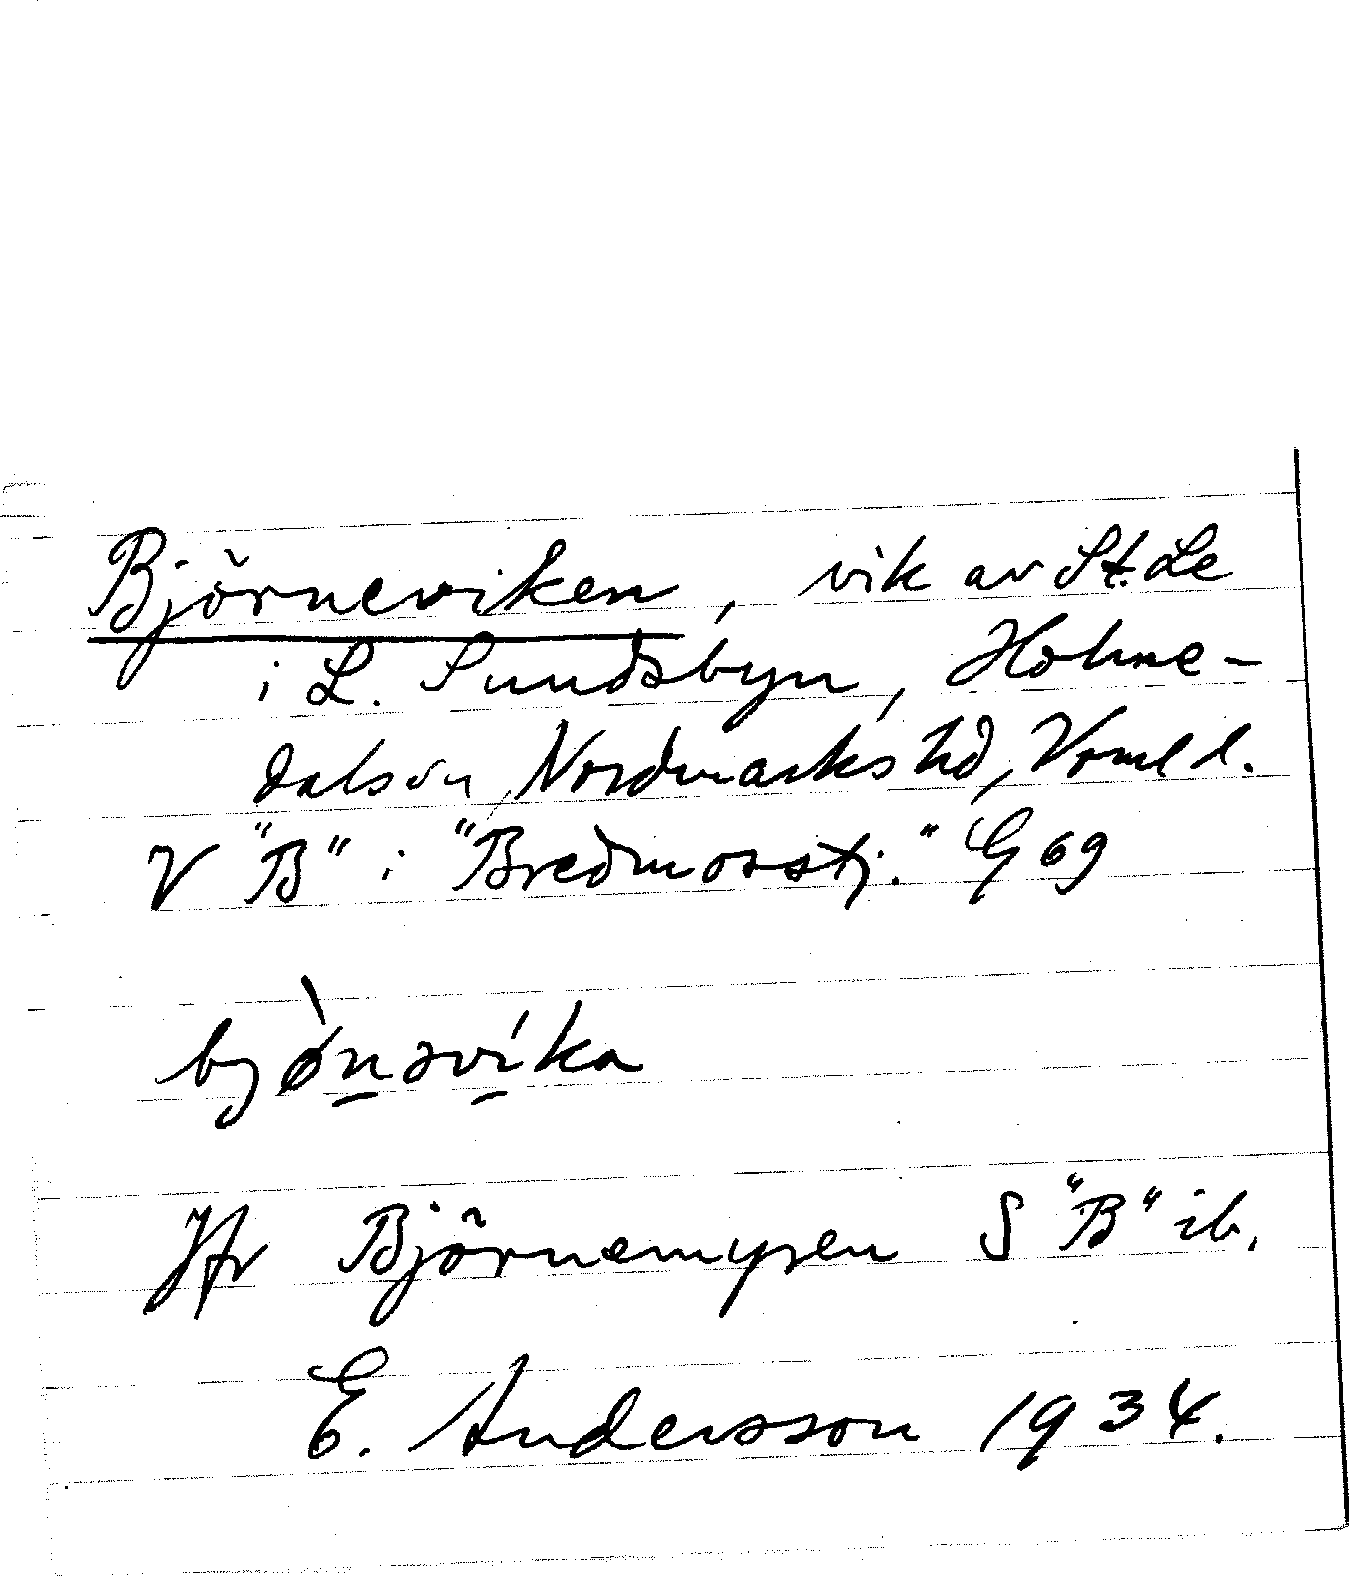 Björneviken, vik av St. Le
i L. Sundsbyn, Holme-
dals sn, Nordmarks hd, Vrml l.
V "B" i "Bredmosstj." G 69
bjø̀nəvíka
Jfr Björnemyren S "B" ib.
E. Andersson 1934.